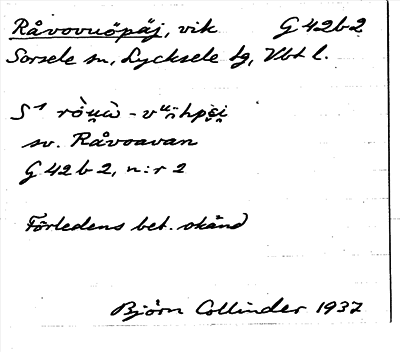 Råvovuöpäj, vik G 42b2
Sorsele sn, Lycksele lg, Vbt l.
sv. Råvoavan
G 42 b 2, n:r 2
Förledens bet. okänd
Björn Collinder 1937